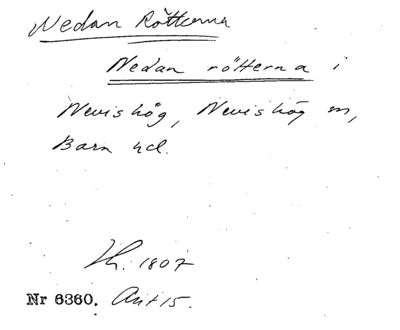 Nedan Rötterna
Nedan rötterna i
Nevishög, Nevishög sn,
Bara hd.
Lh. 1807
Nr 6360. Avt 15.